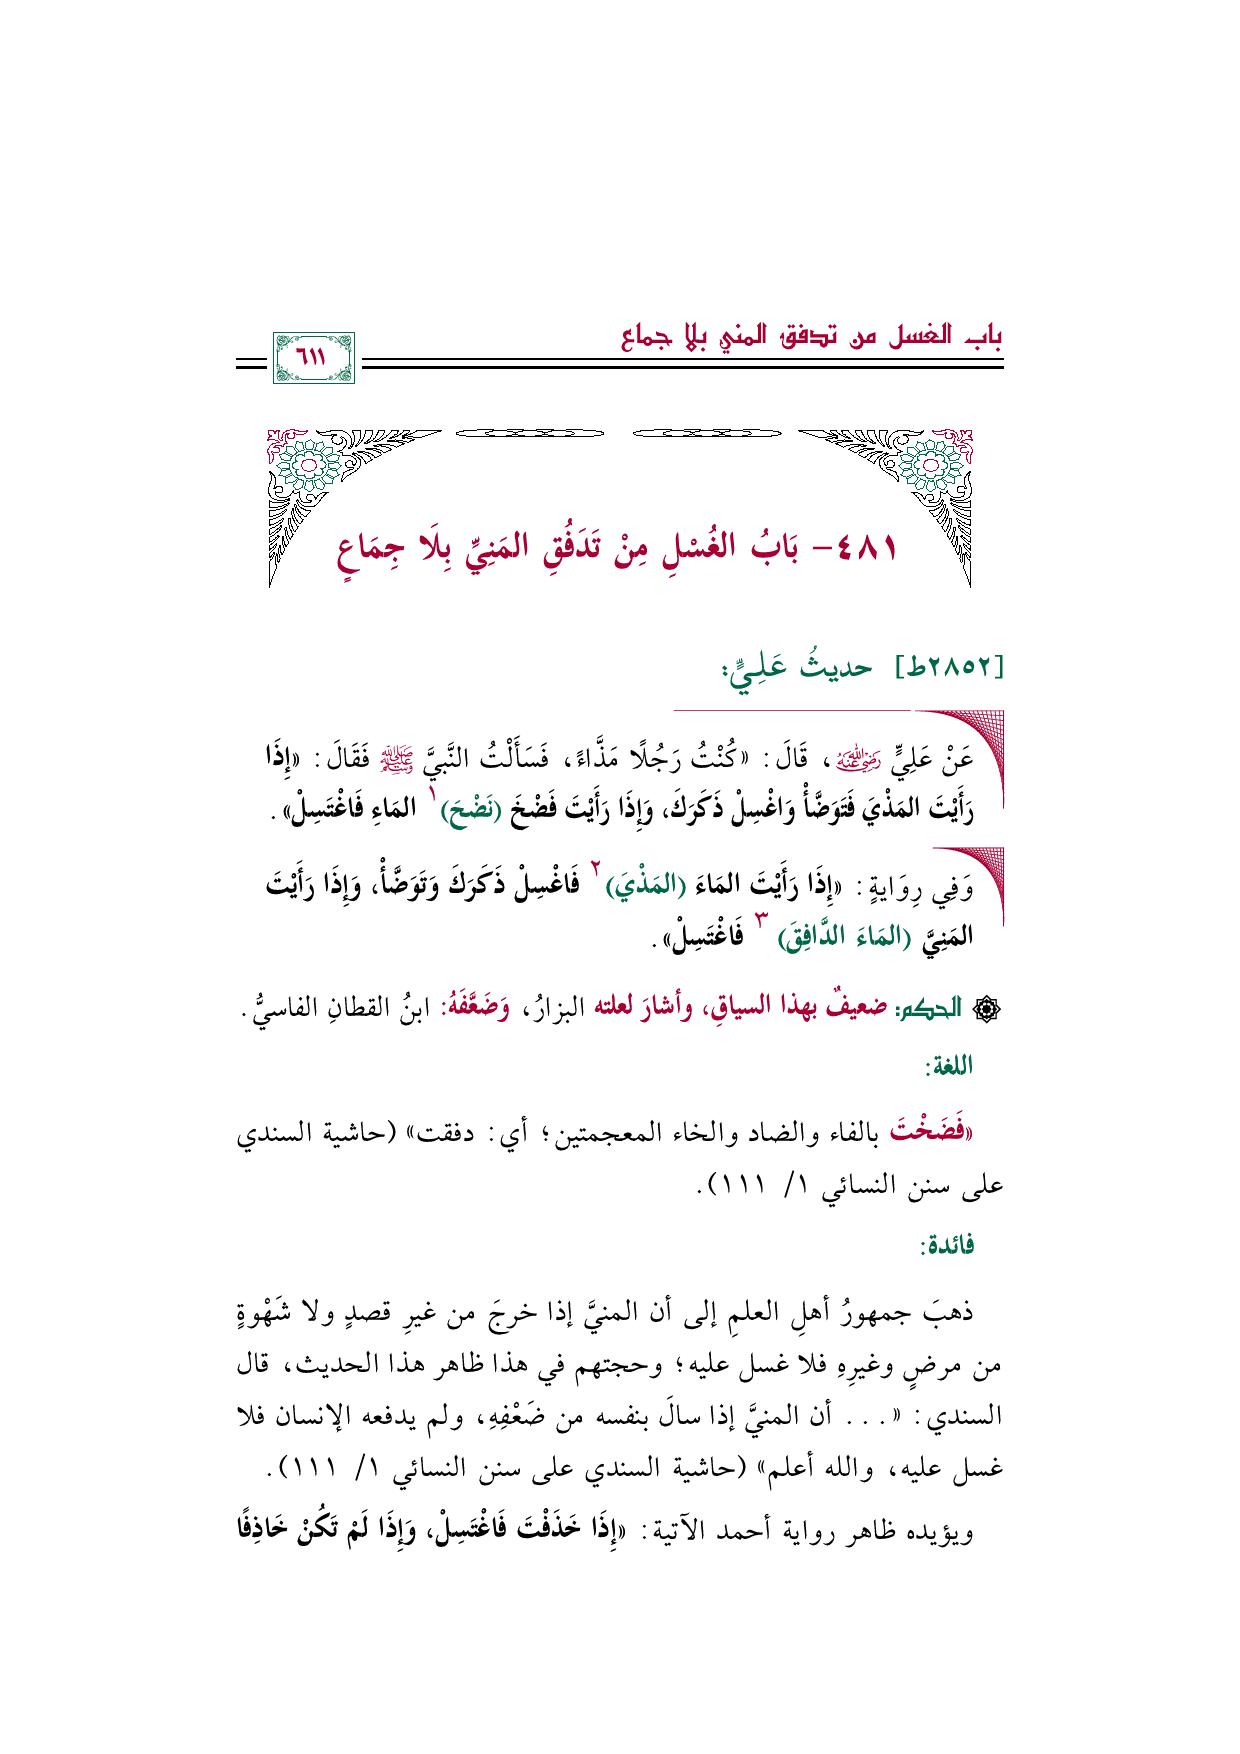 باب الغسل من تدفق المني بلا جماع
٦١١
٤٨١- بَابُ الغُسْلِ مِنْ تَدَفُقِ المَنِيِّ بِلَا جِمَاعٍ
[٢٨٥٢ط] حديثُ عَلِيٍّ:
عَنْ عَلِيٍّ رَضِيَ اللهُ عَنْهُ، قَالَ: «كُنْتُ رَجُلًا مَذَّاءً، فَسَأَلْتُ النَّبِيَّ ﷺ فَقَالَ: «إِذَا
رَأَيْتَ المَذْيَ فَتَوَضَّأْ وَاغْسِلْ ذَكَرَكَ، وَإِذَا رَأَيْتَ فَضْخَ (نَضْحَ)١ المَاءِ فَاغْتَسِلْ».
وَفِي رِوَايةٍ: «إِذَا رَأَيْتَ المَاءَ (المَذْيَ)٢ فَاغْسِلْ ذَكَرَكَ وَتَوَضَّأْ، وَإِذَا رَأَيْتَ
المَنِيَّ (المَاءَ الدَّافِقَ)٣ فَاغْتَسِلْ».
الحكم: ضعيفٌ بهذا السياقِ، وأشارَ لعلته البزارُ، وَضَعَّفَهُ: ابنُ القطانِ الفاسيُّ.
اللغة:
«فَضَخْتَ بالفاء والضاد والخاء المعجمتين؛ أي: دفقت» (حاشية السندي
على سنن النسائي ١/ ١١١).
فائدة:
ذهبَ جمهورُ أهلِ العلمِ إلى أن المنيَّ إذا خرجَ من غيرِ قصدٍ ولا شَهْوةٍ
من مرضٍ وغيرِهِ فلا غسل عليه؛ وحجتهم في هذا ظاهر هذا الحديث، قال
السندي: «... أن المنيَّ إذا سالَ بنفسه من ضَعْفِهِ، ولم يدفعه الإنسان فلا
غسل عليه، والله أعلم» (حاشية السندي على سنن النسائي ١/ ١١١).
ويؤيده ظاهر رواية أحمد الآتية: «إِذَا خَذَفْتَ فَاغْتَسِلْ، وَإِذَا لَمْ تَكُنْ خَاذِفًا